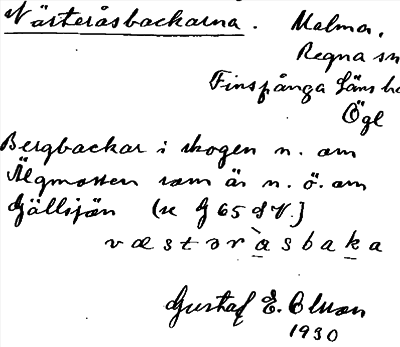 Västeråsbackarna. Malma,
Regna sn
Finspånga läns hd
Ögl
Bergbackar i skogen n. om
Älgmossen som är n. ö. om
Gällsjön (se G 65 d V.)
væstəràsbaka
Gustaf E. Olsson
1930